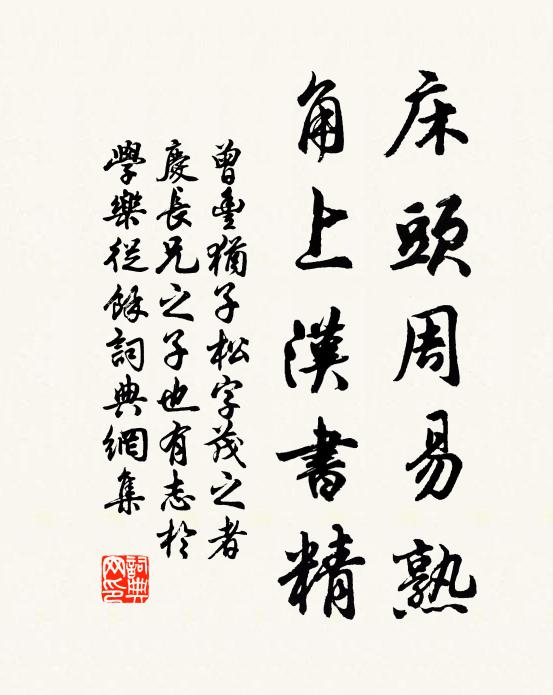 床頭周易熟
角上漢書精
曾豐猶子松字茂之者
慶長兄之子也有志於
學樂從餘詞典網集
詞典網印